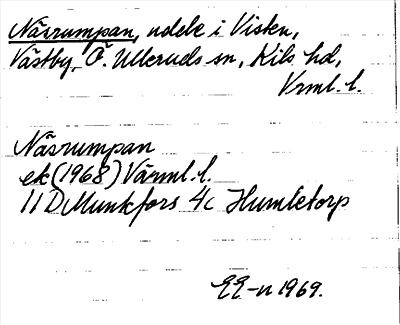 Näsrumpan, udde i Visten,
Västby, Ö. Ulleruds sn, Kils hd,
Vrml. l.
Näsrumpan
ek (1968) Värml. l.
11 D Munkfors 4c Humletorp
EE-n 1969.